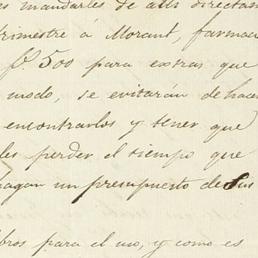 es mandarles de allí directam
trimestre á Morant, farmac
₱. 500 para extras que
modo, se evitarán de hacer
encontrarlos y tener que
les perder el tiempo que
hagan un presupuesto de sus
bros para el uso, y como es